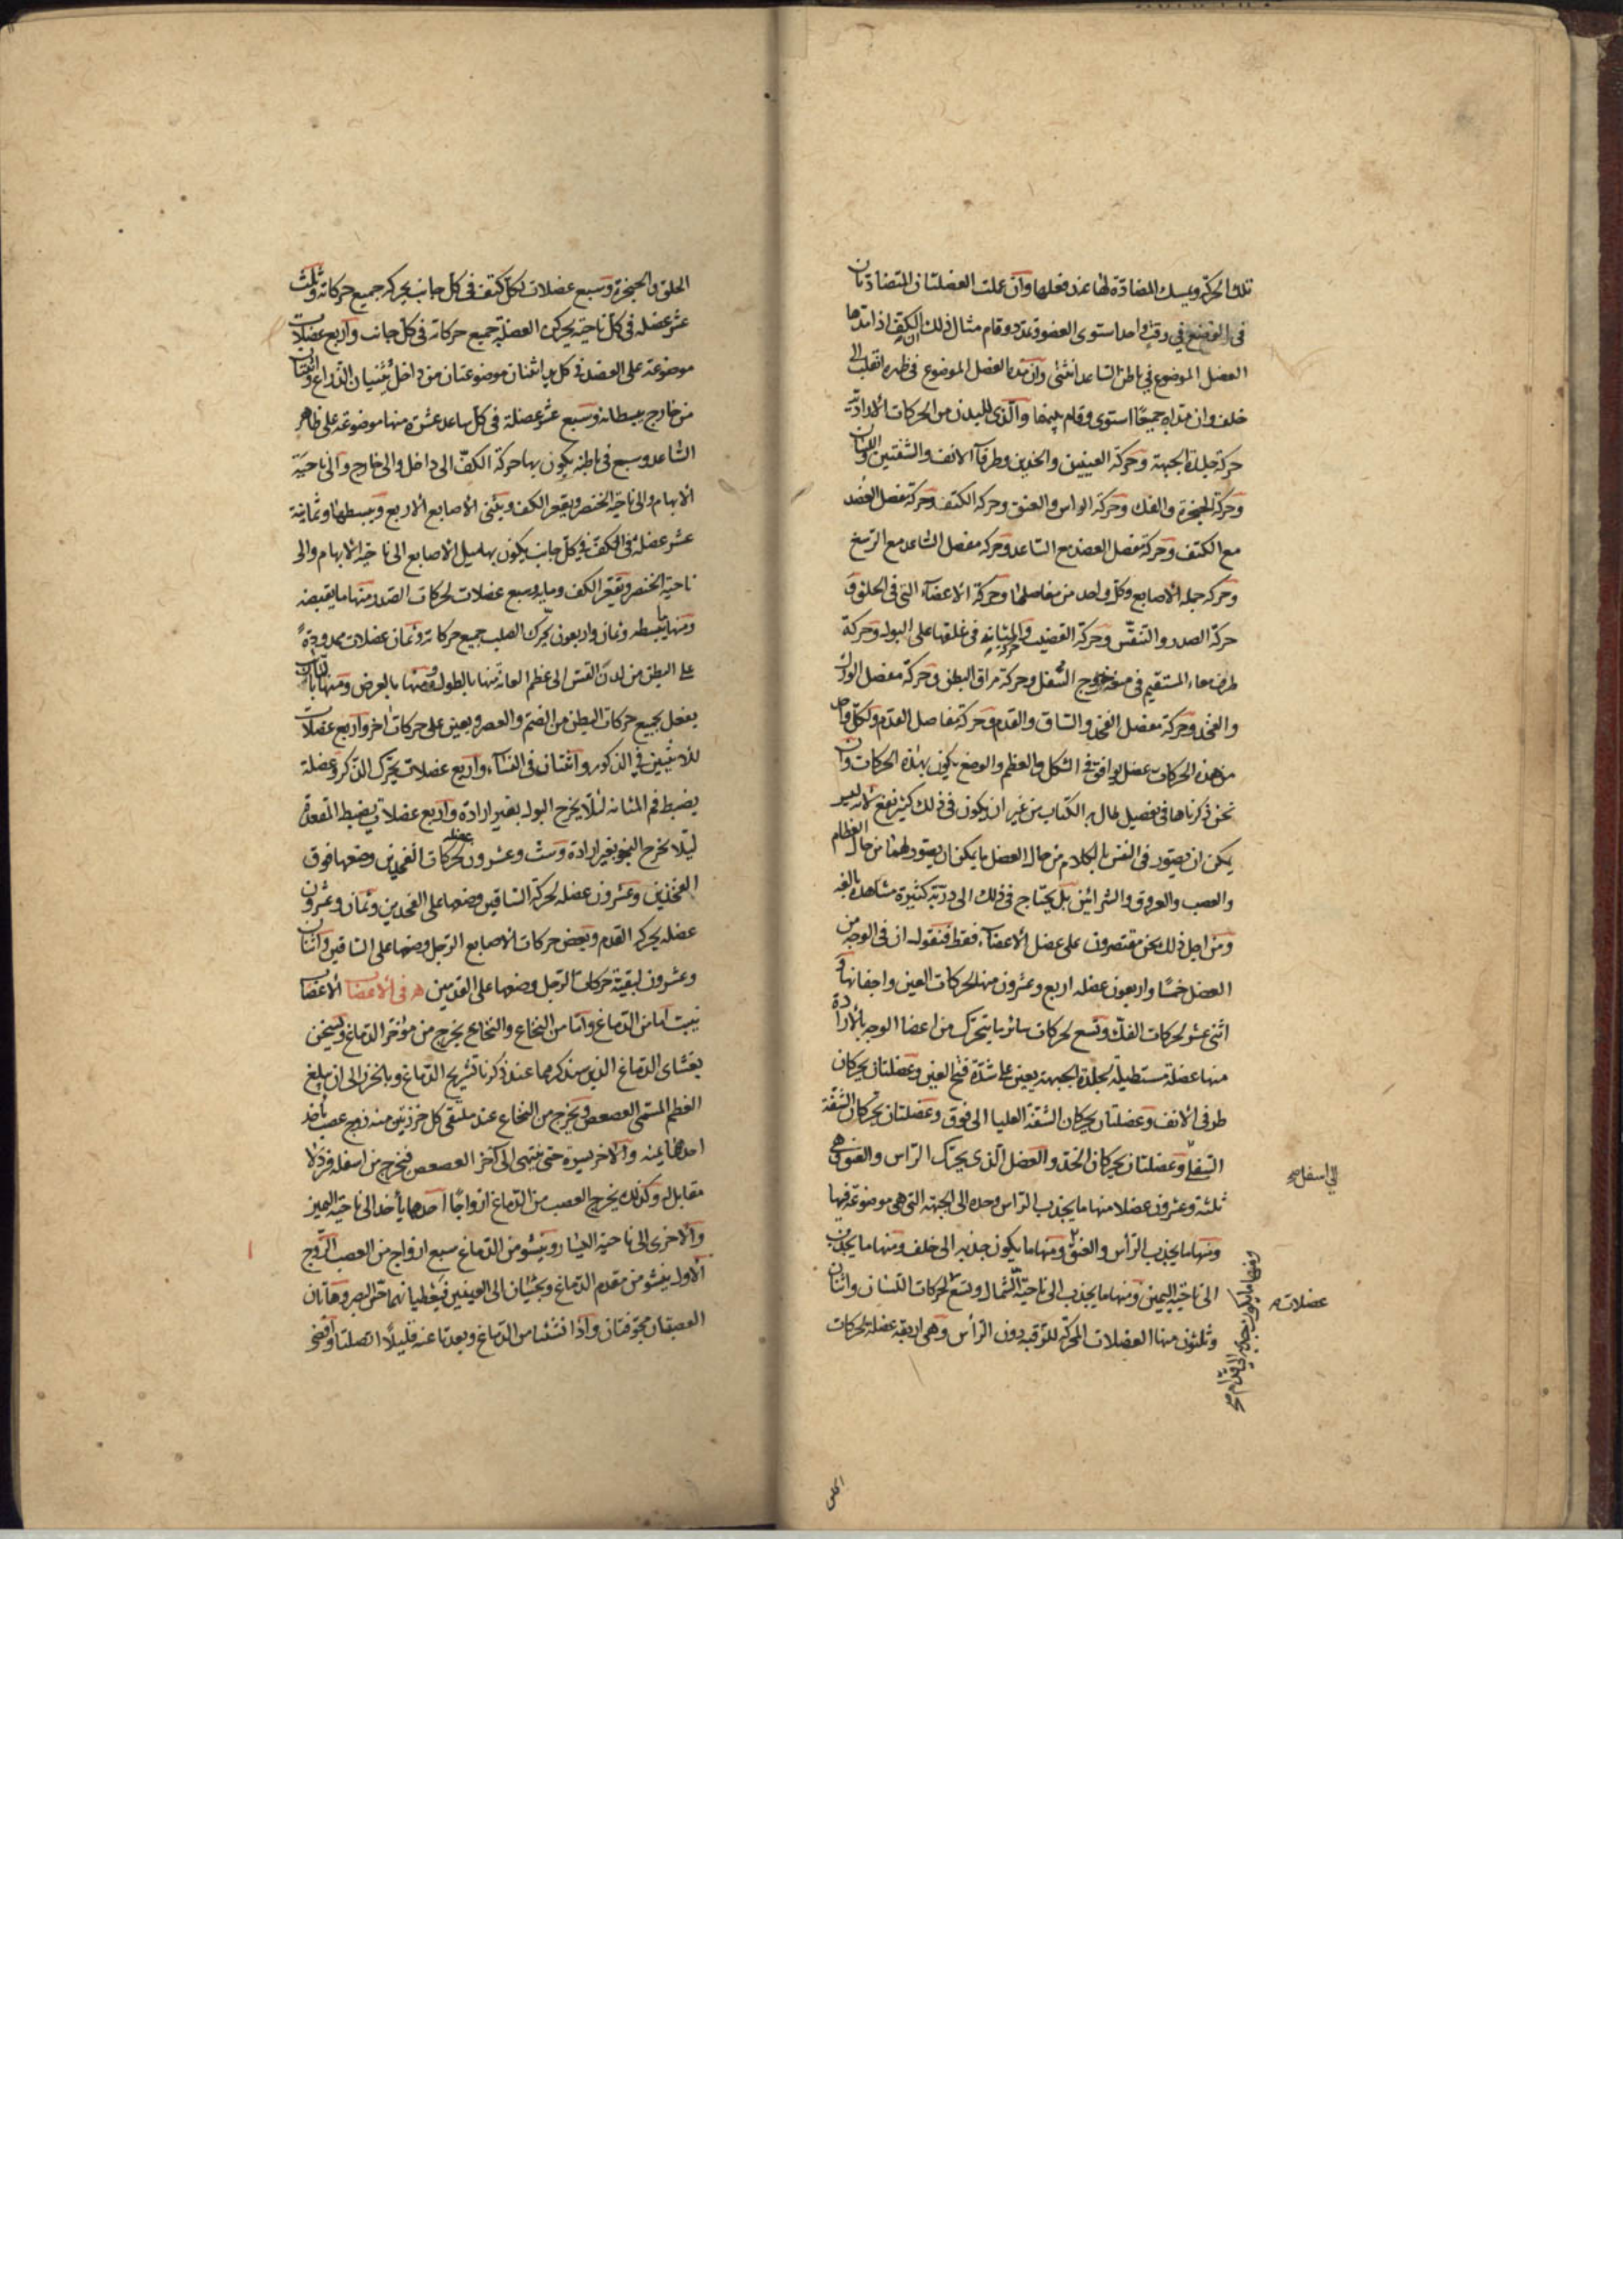 تلك الحركة ويمسك المضادة لها عند فعلها وان عملت العضلتان المتضادتان
في الوضع في وقت واحد استوى العضو وتمدد وقام مثال ذلك ان الكف اذا مدها
العضل الموضوع في باطن الساعد انثنى وان مده العضل الموضوع في ظهره انقلب الى
خلف وان مداه جميعا استوى وقام بينهما والذي للبدن من الحركات الارادية
حركة جلدة الجبهة وحركة العينين والخدين وطرفا الانف والشفتين واللسان
وحركة الحنجرة والفك وحركة الراس والعنق وحركة الكتف وحركة مفصل العضد
مع الكتف وحركة مفصل العضد مع الساعد وحركة مفصل الساعد مع الرسغ
وحركة جملة الاصابع وكل واحد من مفاصلها وحركة الاعضاء التي في الحلق و
حركة الصدر والتنفس وحركة القضيب وحركة المثانة في غلقها على البول وحركة
طرف معاء المستقيم في منعه خروج الثفل وحركة مراق البطن وحركة مفصل الورك
والفخذ وحركة مفصل الفخذ والساق والقدم وحركة مفاصل القدم ولكل واحد
من هذه الحركات عضل يوافق في الشكل والعظم والوضع يكون بهذه الحركات وان
نحن ذكرناها في تفصيل لطال به الكتاب من غير ان يكون في ذلك كثير نفع لانه ليس
يمكن ان يصور في النفس بالكلام من حال العضل ما يمكن ان يصور لهما من حال العظام
والعصب والعروق والشرائين بل يحتاج في ذلك الى دربة كثيرة مشاهدة بالغة
ومن اجل ذلك نحن مقتصرون على عضل الاعضاء فقط فنقول ان في الوجه من
العضل خمسا واربعون عضله اربع وعشرون منها لحركات العين واجفانها و
اثنى عشر لحركات الفك وتسع لحركات سائر ما يتحرك من اعضا الوجه بالارادة
منها عضلة مستطيلة لجلدة الجبهة يعين على شدة فتح العين وعضلتان يحركان
طرفي الانف وعضلتان يحركان الشفة العليا الى فوق وعضلتان يحركان الشفة
السفلى وعضلتان يحركان الخد والعضل الذي يحرك الراس والعنق هي
الى اسفل صح
ثلثة وعشرون عضلا منها ما يجذب الراس وحده الى الجهة التي هي موضوعة فيها
ومنها ما يجذب الرأس والعنق ومنها ما يكون جذبه الى خلف ومنها ما يجذب
ومنها ما يكون جذبه الى قدام صح
الى ناحية اليمين ومنها ما يجذب الى ناحية الشمال وتسع لحركات اللسان واثنان
عضلات
وثلثون منها العضلات المحركة للرقبة دون الرأس وهي اربعة عضلة لحركات
الحلق
الحلق والحنجرة وسبع عضلات لكل كتف في كل جانب يحركه جميع حركاته وثلث
عشر عضله في كل ناحية يحركن العضلة جميع حركاته في كل جانب واربع عضلات
موضوعة على العضد في كل يد اثنتان موضوعتان من داخل يثنيان الذراع واثنتان
من خارج يبسطانه وسبع عشر عضلة في كل ساعد عشرة منها موضوعة على ظاهر
الساعد وسبع في باطنه يكون بها حركة الكف الى داخل والى خارج والى ناحية
الابهام والى ناحية الخنصر ويقعر الكف ويثنى الاصابع الاربع ويبسطها وثمانية
عشر عضلة في الكف في كل جانب يكون بها ميل الاصابع الى ناحية الابهام والى
ناحية الخنصر وتقعر الكف وماية وسبع عضلات لحركات الصدر منها ما يقبضه
ومنها ما يبسطه وثمان واربعون يحرك الصلب جميع حركاته وثمان عضلات ممدودة
على البطن من لدن القس الى عظم العانة منها بالطول ومنها بالعرض ومنها
يفعل بجميع حركات البطن من الضم والعصر ويعين على حركات اخر واربع عضلات
للانثيين في الذكور واثنتان في النساء واربع عضلات يحرك الذكر وعضلة
يضبط فم المثانه لئلا يخرج البول بغير ارادة واربع عضلات يضبط المقعدة
ليلا يخرج النجو بغير ارادة وست وعشرون عضله لحركات الفخذين وضعها فوق
الفخذين وعشرون عضله لحركة الساقين وضعها على الفخذين وثمان وعشرون
عضله يحرك القدم وبعض حركات الاصابع الرجل وضعها على الساقين واثنان
وعشرون لبقية حركات الرجل وضعها على القدمين ه في الاعصاب الاعصاب
ينبت اما من الدماغ واما من النخاع والنخاع يخرج من مؤخر الدماغ ويتحصن
بغشاى الدماغ الذين سنذكرهما عند ذكرنا تشريح الدماغ وبالخرز الى ان يبلغ
العظم المسمى العصعص ويخرج من النخاع عند ملتقى كل خرزتين منه زوج عصب ياخذ
احدهما يمنه والاخر يسرة حتى ينتهي الى آخر العصعص فيخرج من اسفله فرد لا
مقابل له وكذلك يخرج العصب من الدماغ ازواجا احدهما يأخذ الى ناحية اليمين
والاخرى الى ناحية اليسار وينشو من الدماغ سبع ازواج من العصب الزوج
الاول ينشو من مقدم الدماغ ويجئيان الى العينين فيعطيانهما حس البصر وهاتان
العصبتان مجوفتان واذا نشئتا من الدماغ وبعدتا عنه قليلا اتصلتا وافضى